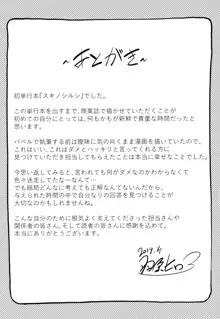 ~あとがき~
初単行本『スキノシルシ』でした。
この単行本を出すまで、商業誌で描かせていただくことが
初めての自分にとっては、何もかもが新鮮で貴重な時間だったと
思います。
バベルで執筆する前は曖昧に気の向くまま漫画を描いていたので、
これは良い、これはダメとハッキリと言ってくれる方に
見つけていただき担当してもらえたことは本当に幸せなことでした。
今思い返してみると、言われても何がダメなのかわからなくて
色々迷走してたな…なんて…
でも結局どんなに考えても正解なんてないんだから、
与えられた時間の中で自分なりの回答を見つけることが
大切なのかもしれませんね。
こんな自分のために根気よく支えてくださった担当さんや
関係者の皆さん、そして読者の皆さんに感謝を込めて、
本当にありがとうございます。
2019.4